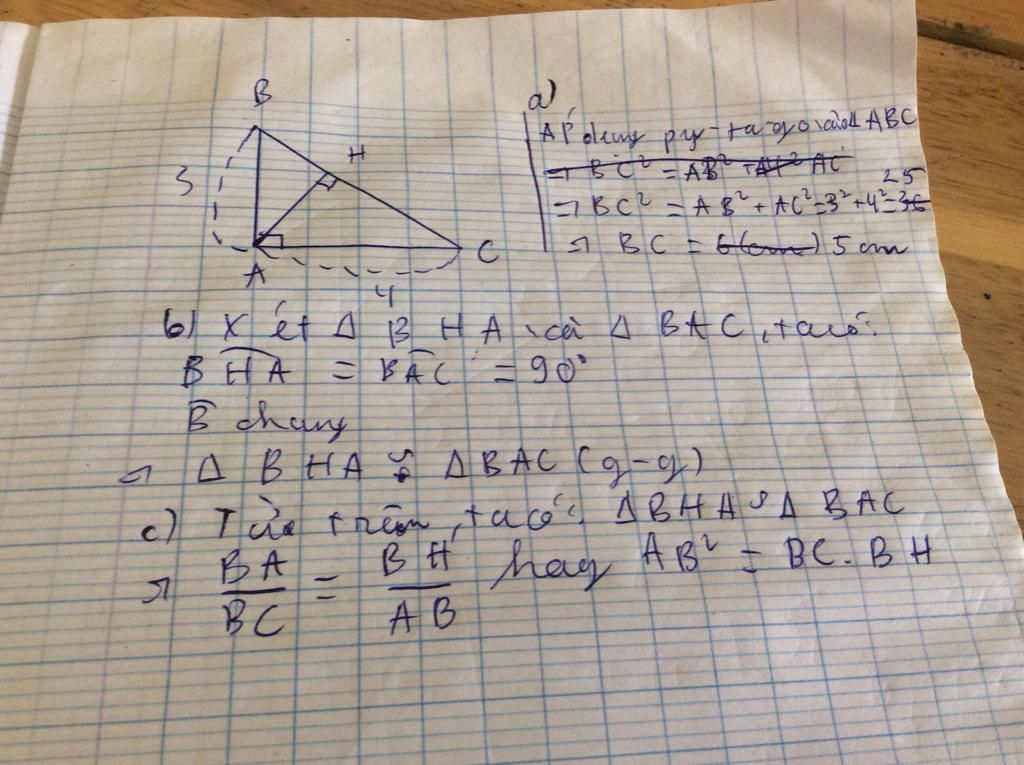 B
H
3
A
C
4
a)
Áp dụng py-ta-go vào Δ ABC
⇒ BC² = AB² + AC
⇒ BC² = AB² + AC² = 3² + 4² = 36 25
⇒ BC = 6 (cm) 5 cm
b) Xét Δ BHA và Δ BAC, ta có:
BHA = BAC = 90°
B chung
⇒ Δ BHA ∽ Δ BAC (g-g)
c) Từ trên, ta có: Δ BHA ∽ Δ BAC
⇒ BA/BC = BH/AB hay AB² = BC. BH